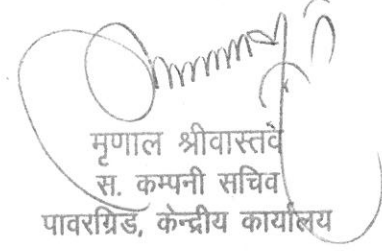 मृणाल श्रीवास्तव
स. कम्पनी सचिव
पावरग्रिड, केन्द्रीय कार्यालय